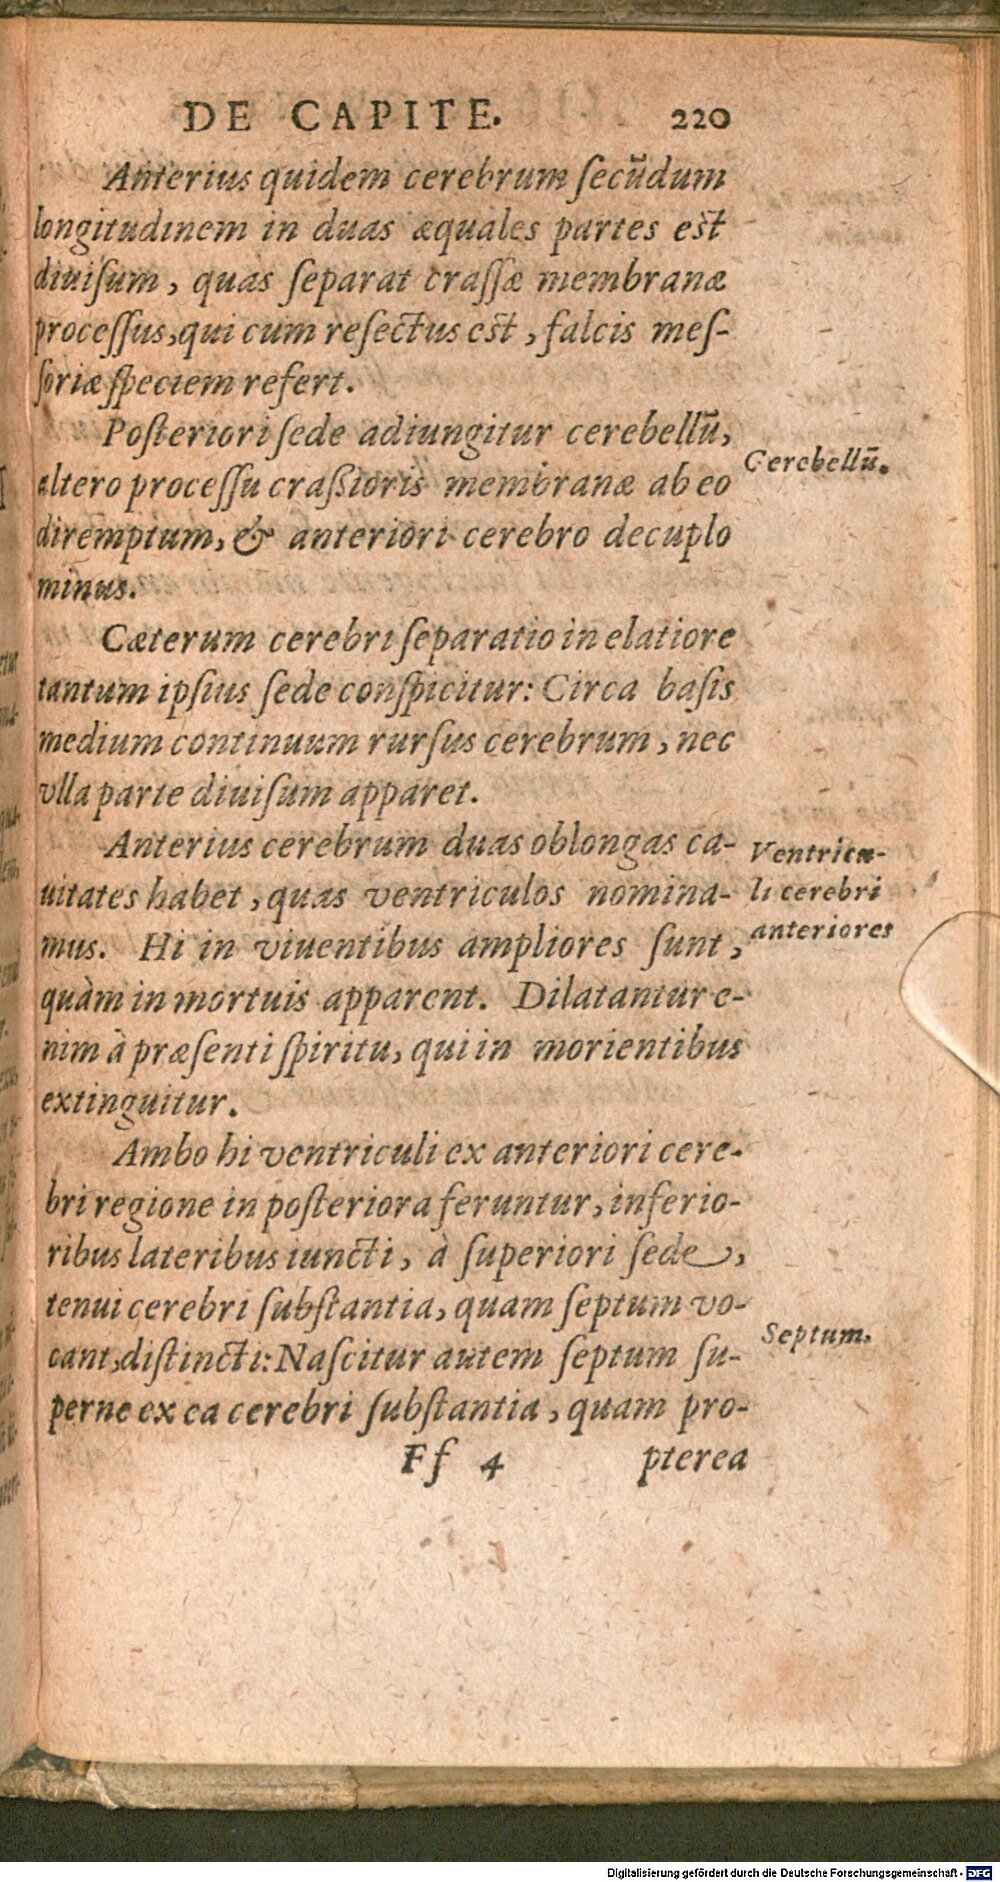 DE CAPITE. 220
Anterius quidem cerebrum ſecūdum
longitudinem in duas æquales partes est
diuiſum, quas ſeparat craſſæ membranæ
proceſſus, qui cum reſectus est, falcis meſ-
ſoriæ ſpeciem refert.
Poſteriori ſede adiungitur cerebellū,
Cerebellū.
altero proceſſu craßioris membranæ ab eo
diremptum, & anteriori cerebro decuplo
minus.
Cæterum cerebri ſeparatio in elatiore
tantum ipſius ſede conſpicitur: Circa baſis
medium continuum rurſus cerebrum, nec
vlla parte diuiſum apparet.
Anterius cerebrum duas oblongas ca-
Ventricu-
li cerebri
anteriores
uitates habet, quas ventriculos nomina-
mus. Hi in viuentibus ampliores ſunt,
quàm in mortuis apparent. Dilatantur e-
nim à præſenti ſpiritu, qui in morientibus
extinguitur.
Ambo hi ventriculi ex anteriori cere-
bri regione in poſteriora feruntur, inferio-
ribus lateribus iuncti, à ſuperiori ſede,
tenui cerebri ſubſtantia, quam ſeptum vo-
Septum.
cant, diſtincti: Naſcitur autem ſeptum ſu-
perne ex ea cerebri ſubſtantia, quam pro-
Ff 4 pterea
Digitalisierung gefördert durch die Deutsche Forschungsgemeinschaft - DFG